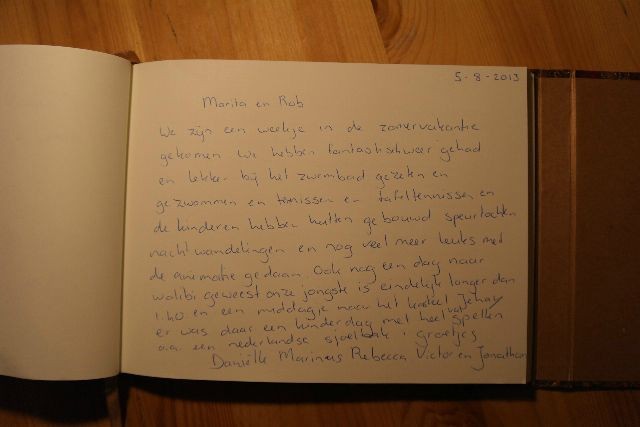 5-8-2013
Marita en Rob
We zijn een weekje in de zomervakantie
gekomen we hebben fantastisch weer gehad
en lekker bij het zwembad gezeten en
gezwommen en tennissen en tafeltennissen en
de kinderen hebben hutten gebouwd speurtochten
nachtwandelingen en nog veel meer leuks met
de animatie gedaan. Ook nog een dag naar
walibi geweest onze jongste is eindelijk langer dan
1.40 en een middagje naar het kasteel Jehay
er was daar een kinderdag met heel veel spellen
o.a. een nederlandse sjoelbak! groetjes
Daniëlle Marinus Rebecca Victor en Jonathan